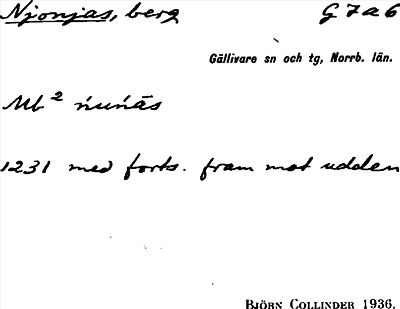 Njonjas, berg G 7 a 6
Gällivare sn och tg, Norrb. län.
Mb² ńuńás
1231 med forts. fram mot udden
BJÖRN COLLINDER 1936.